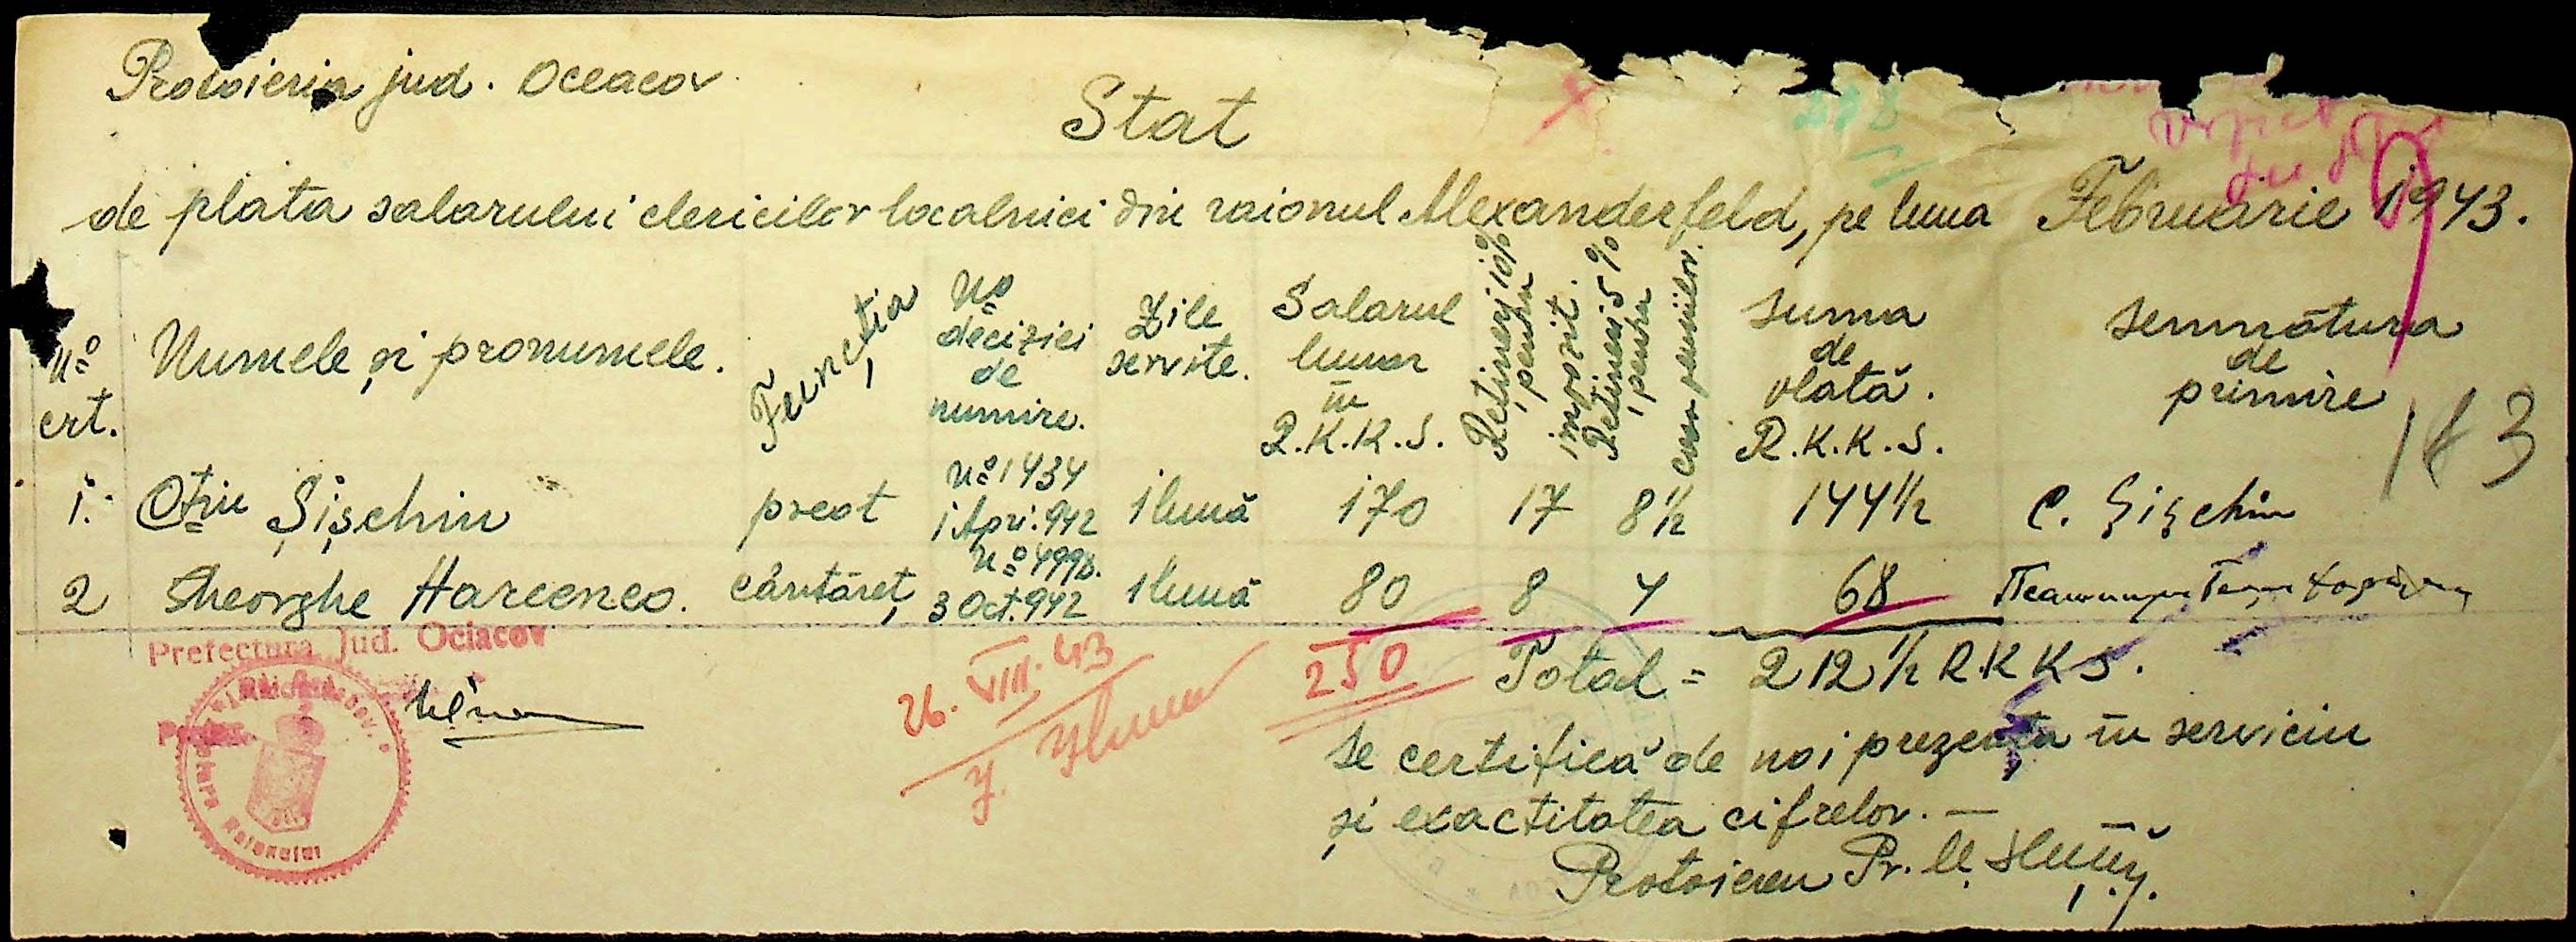 Protoieria jud. Oceacov
Stat
de plata salarului clericilor localnici din raionul Alexanderfeld, pe luna Februarie 1943.
No crt.
Numele și pronumele.
Funcția
No deciziei de numire.
Zile servite.
Salarul lunar în R.K.K.S.
Rețineri 10% pentru impozit.
Rețineri 5% pentru casa pensiilor.
Suma de plată. R.K.K.S.
Semnătura de primire
183
1. Ctin Șișchin preot No 1434 1 Apr. 942 1 lună 170 17 8 1/2 144 1/2 C. Șișchin
2 Gheorghe Harcenco. cântăreț No 4998. 3 Oct. 942 1 lună 80 8 4 68
Prefectura Jud. Ociacov
26.VIII.43
250
Total = 212 1/2 R.K.K.S.
Se certifică de noi prezența în serviciu
și exactitatea cifrelor. —
Protoiereu Pr.